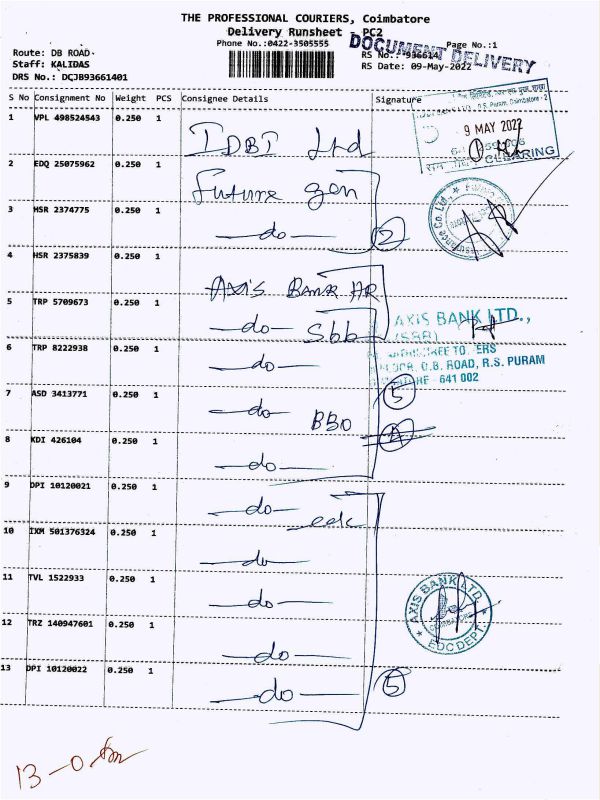 THE PROFESSIONAL COURIERS, Coimbatore
Delivery Runsheet - PC2
Phone No.:0422-3505555
Page No.:1
DOCUMENT DELIVERY
Route: DB ROAD
RS No.: 936614
Staff: KALIDAS
RS Date: 09-May-2022
DRS No.: DCJB93661401
S No Consignment No Weight PCS Consignee Details Signature
1 VPL 498524543 0.250 1 IDBI Ltd
R.S. Puram, Coimbatore - 2
9 MAY 2022
CLEARING
2 EDQ 25075962 0.250 1 Future gen
3 HSR 2374775 0.250 1 -do- 2
4 HSR 2375839 0.250 1 AXIS BANK AR
5 TRP 5709673 0.250 1 -do- Sbb
AXIS BANK LTD.,
(SBB)
D.B. ROAD, R.S. PURAM
641 002
6 TRP 8222938 0.250 1 -do-
7 ASD 3413771 0.250 1 -do- BBO 5
8 KDI 426104 0.250 1 -do-
9 DPI 10120021 0.250 1 -do-
10 IXM 501376324 0.250 1 -do-
11 TVL 1522933 0.250 1 -do-
AXIS BANK LTD.
COIMBATORE
EDC DEPT.
12 TRZ 140947601 0.250 1 -do-
13 DPI 10120022 0.250 1 -do- 5
13-0-